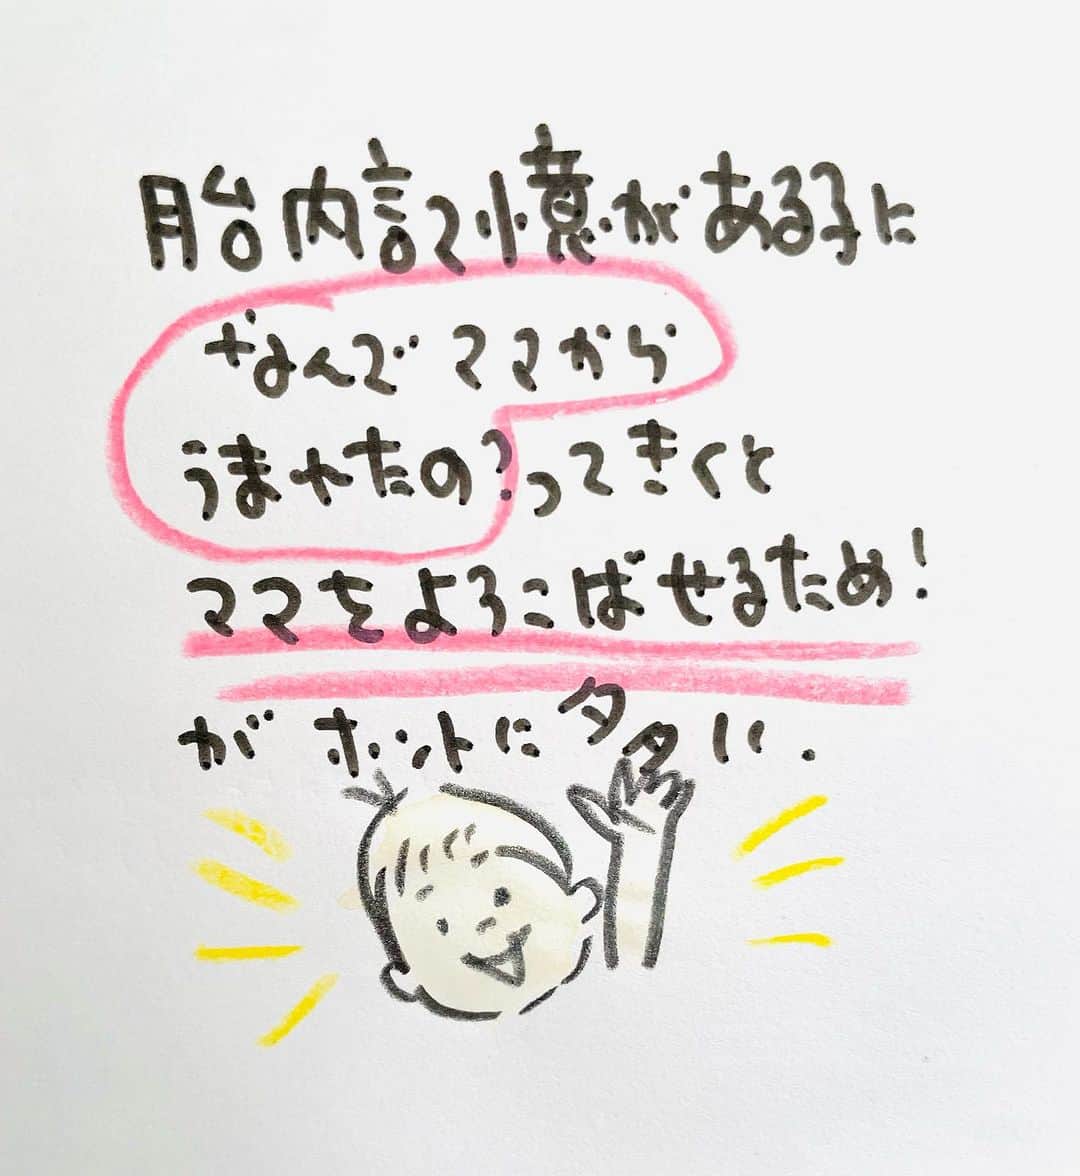 胎内記憶がある子に
なんでママから
うまれたの?ってきくと
ママをよろこばせるため!
がホントに多い.